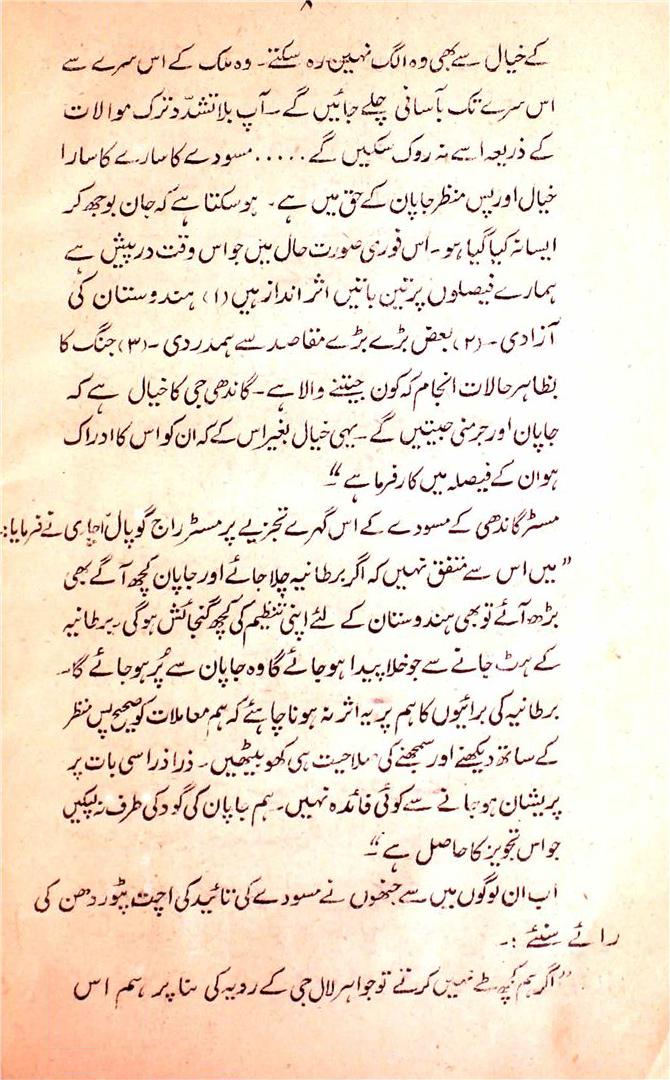 ۸
کے خیال سے بھی وہ الگ نہیں رہ سکتے۔ وہ ملک کے اس سرے سے
اس سرے تک بآسانی چلے جائیں گے۔ آپ بلا تشدّد ترک موالات
کے ذریعہ اسے نہ روک سکیں گے ..... مسودے کا سارے کا سارا
خیال اور پس منظر جاپان کے حق میں ہے۔ ہو سکتا ہے کہ جان بوجھ کر
ایسا نہ کیا گیا ہو۔ اس فوری صورت حال میں جو اس وقت درپیش ہے
ہمارے فیصلوں پر تین باتیں اثر انداز ہیں (۱) ہندوستان کی
آزادی۔ (۲) بعض بڑے بڑے مقاصد سے ہمدردی۔ (۳) جنگ کا
بظاہر حالات انجام کہ کون جیتنے والا ہے۔ گاندھی جی کا خیال ہے کہ
جاپان اور جرمنی جیتیں گے۔ یہی خیال بغیر اس کے کہ ان کو اس کا ادراک
ہو ان کے فیصلہ میں کارفرما ہے“۔
مسٹر گاندھی کے مسودے کے اس گہرے تجزیے پر مسٹر راج گوپال اچاری نے فرمایا:۔
”میں اس سے متفق نہیں کہ اگر برطانیہ چلا جائے اور جاپان کچھ آگے بھی
بڑھ آئے تو بھی ہندوستان کے لئے اپنی تنظیم کی کچھ گنجائش ہوگی۔ برطانیہ
کے ہٹ جانے سے جو خلا پیدا ہو جائے گا وہ جاپان سے پُر ہو جائے گا۔
برطانیہ کی برائیوں کا ہم پر یہ اثر نہ ہونا چاہئے کہ ہم معاملات کو صحیح پس منظر
کے ساتھ دیکھنے اور سمجھنے کی صلاحیت ہی کھو بیٹھیں۔ ذرا ذرا سی بات پر
پریشان ہو جانے سے کوئی فائدہ نہیں۔ ہم جاپان کی گود کی طرف نہ لپکیں
جو اس تجویز کا حاصل ہے“۔
اب ان لوگوں میں سے جنھوں نے مسودے کی تائید کی اچت پٹوردھن کی
رائے سنئے :۔
”اگر ہم کچھ طے نہیں کرتے تو جواہر لال جی کے رویہ کی بنا پر ہم اس